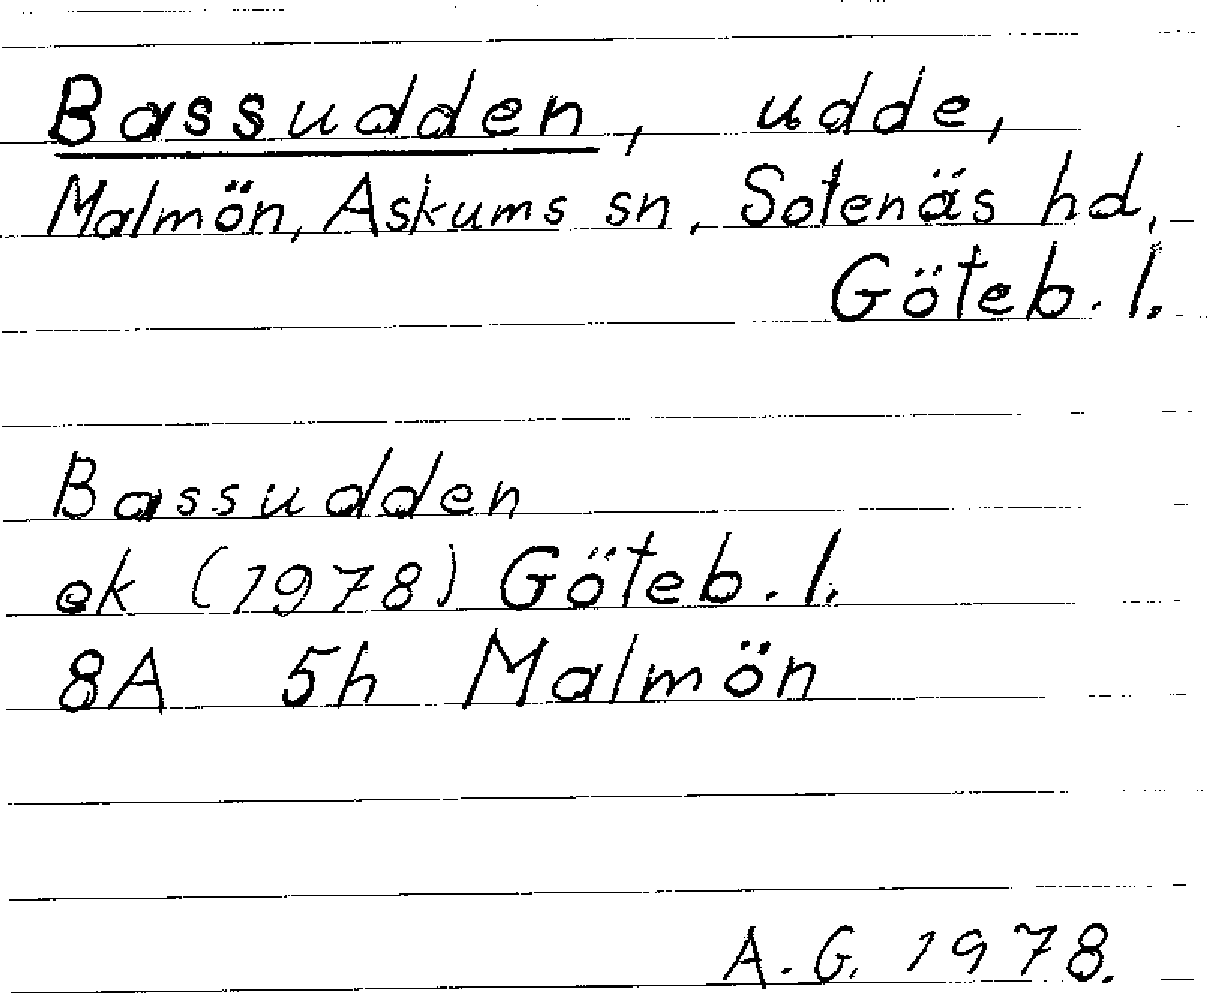 Bassudden, udde,
Malmön, Askums sn, Sotenäs hd,
Göteb. l.
Bassudden
ek (1978) Göteb. l.
8A 5h Malmön
A. G. 1978.